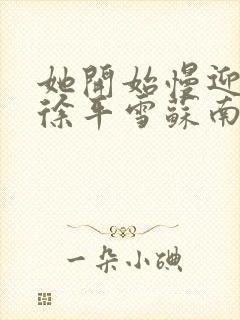 她開始慢迎
徐平雪蘇南
一朵小碘